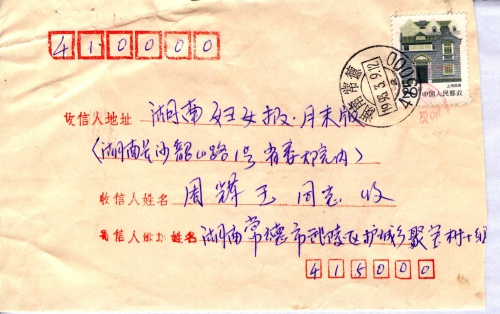 410000
上海民居
中国人民邮政
湖南常德
1993.3.9.12
415000
收信人地址 湖南妇女报·月末版
(湖南长沙韶山路1号省委大院内)
收信人姓名 周辉玉 同志 收
寄信人地址姓名 湖南常德市武陵区护城乡聚宝村十组
415000